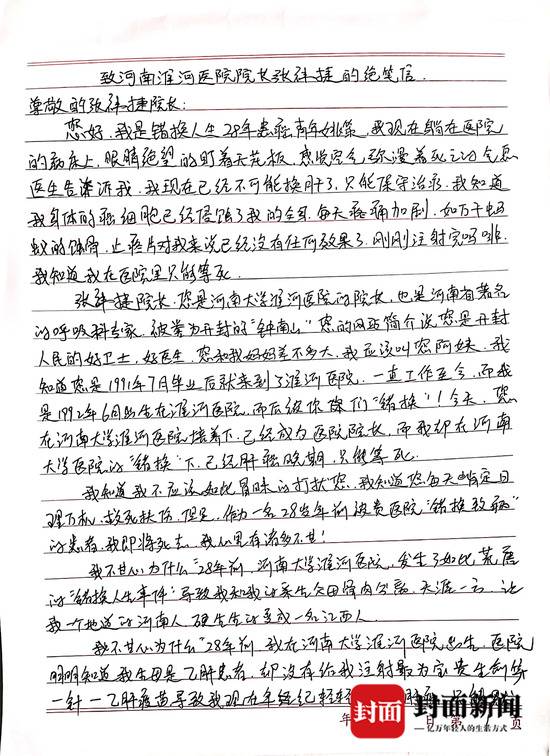 致河南淮河医院院长张祎捷的绝笔信.
尊敬的张祎捷院长:
您好,我是错换人生28年患癌青年姚策,我现在躺在医院
的病床上,眼睛绝望的盯着天花板,感觉空气弥漫着死亡之气息
医生告诉我,我现在已经不可能换肝了,只能保守治疗,我知道
我身体的癌细胞已经侵蚀了我的全身,每天疼痛加剧,如万千蚂
蚁的蚀骨,止疼片对我来说已经没有任何效果了.刚刚注射完吗啡,
我知道我在医院里只能等死.
张祎捷院长,您是河南大学淮河医院的院长,也是河南省著名
的呼吸科专家,被誉为开封的"钟南山"您的网站简介说您是开封
人民的好卫士,好医生,您和我妈妈差不多大,我应该叫您阿姨,我
知道您是1991年7月毕业后就来到了淮河医院,一直工作至今,而我
是1992年6月出生在淮河医院,而后被你院们"错换"!今天,您
在河南大学淮河医院培养下,已经成为医院院长,而我却在河南
大学医院的"错换"下,已经肝癌晚期,只能等死.
我知道我不应该如此冒昧的打扰您,我知道您每天肯定日
理万机,救死扶伤,但是,作为一名28岁年前被贵医院"错换致癌"
的患者,我即将死去,我心里有诸多不甘!
我不甘心为什么"28年前,河南大学淮河医院,发生了如此荒唐
的"错换人生事件"导致我和我的亲生父母骨肉分离,天涯一方,让
我一个地道的河南人,硬生生的变成一名江西人.
我不甘心为什么"28年前,我在河南大学淮河医院出生,医院
明明知道我生母是乙肝患者,却没有给我注射最为宝贵生命第
一针-乙肝疫苗导致我现在年纪轻轻
年 日 第 页
封面 封面新闻
亿万年轻人的生活方式